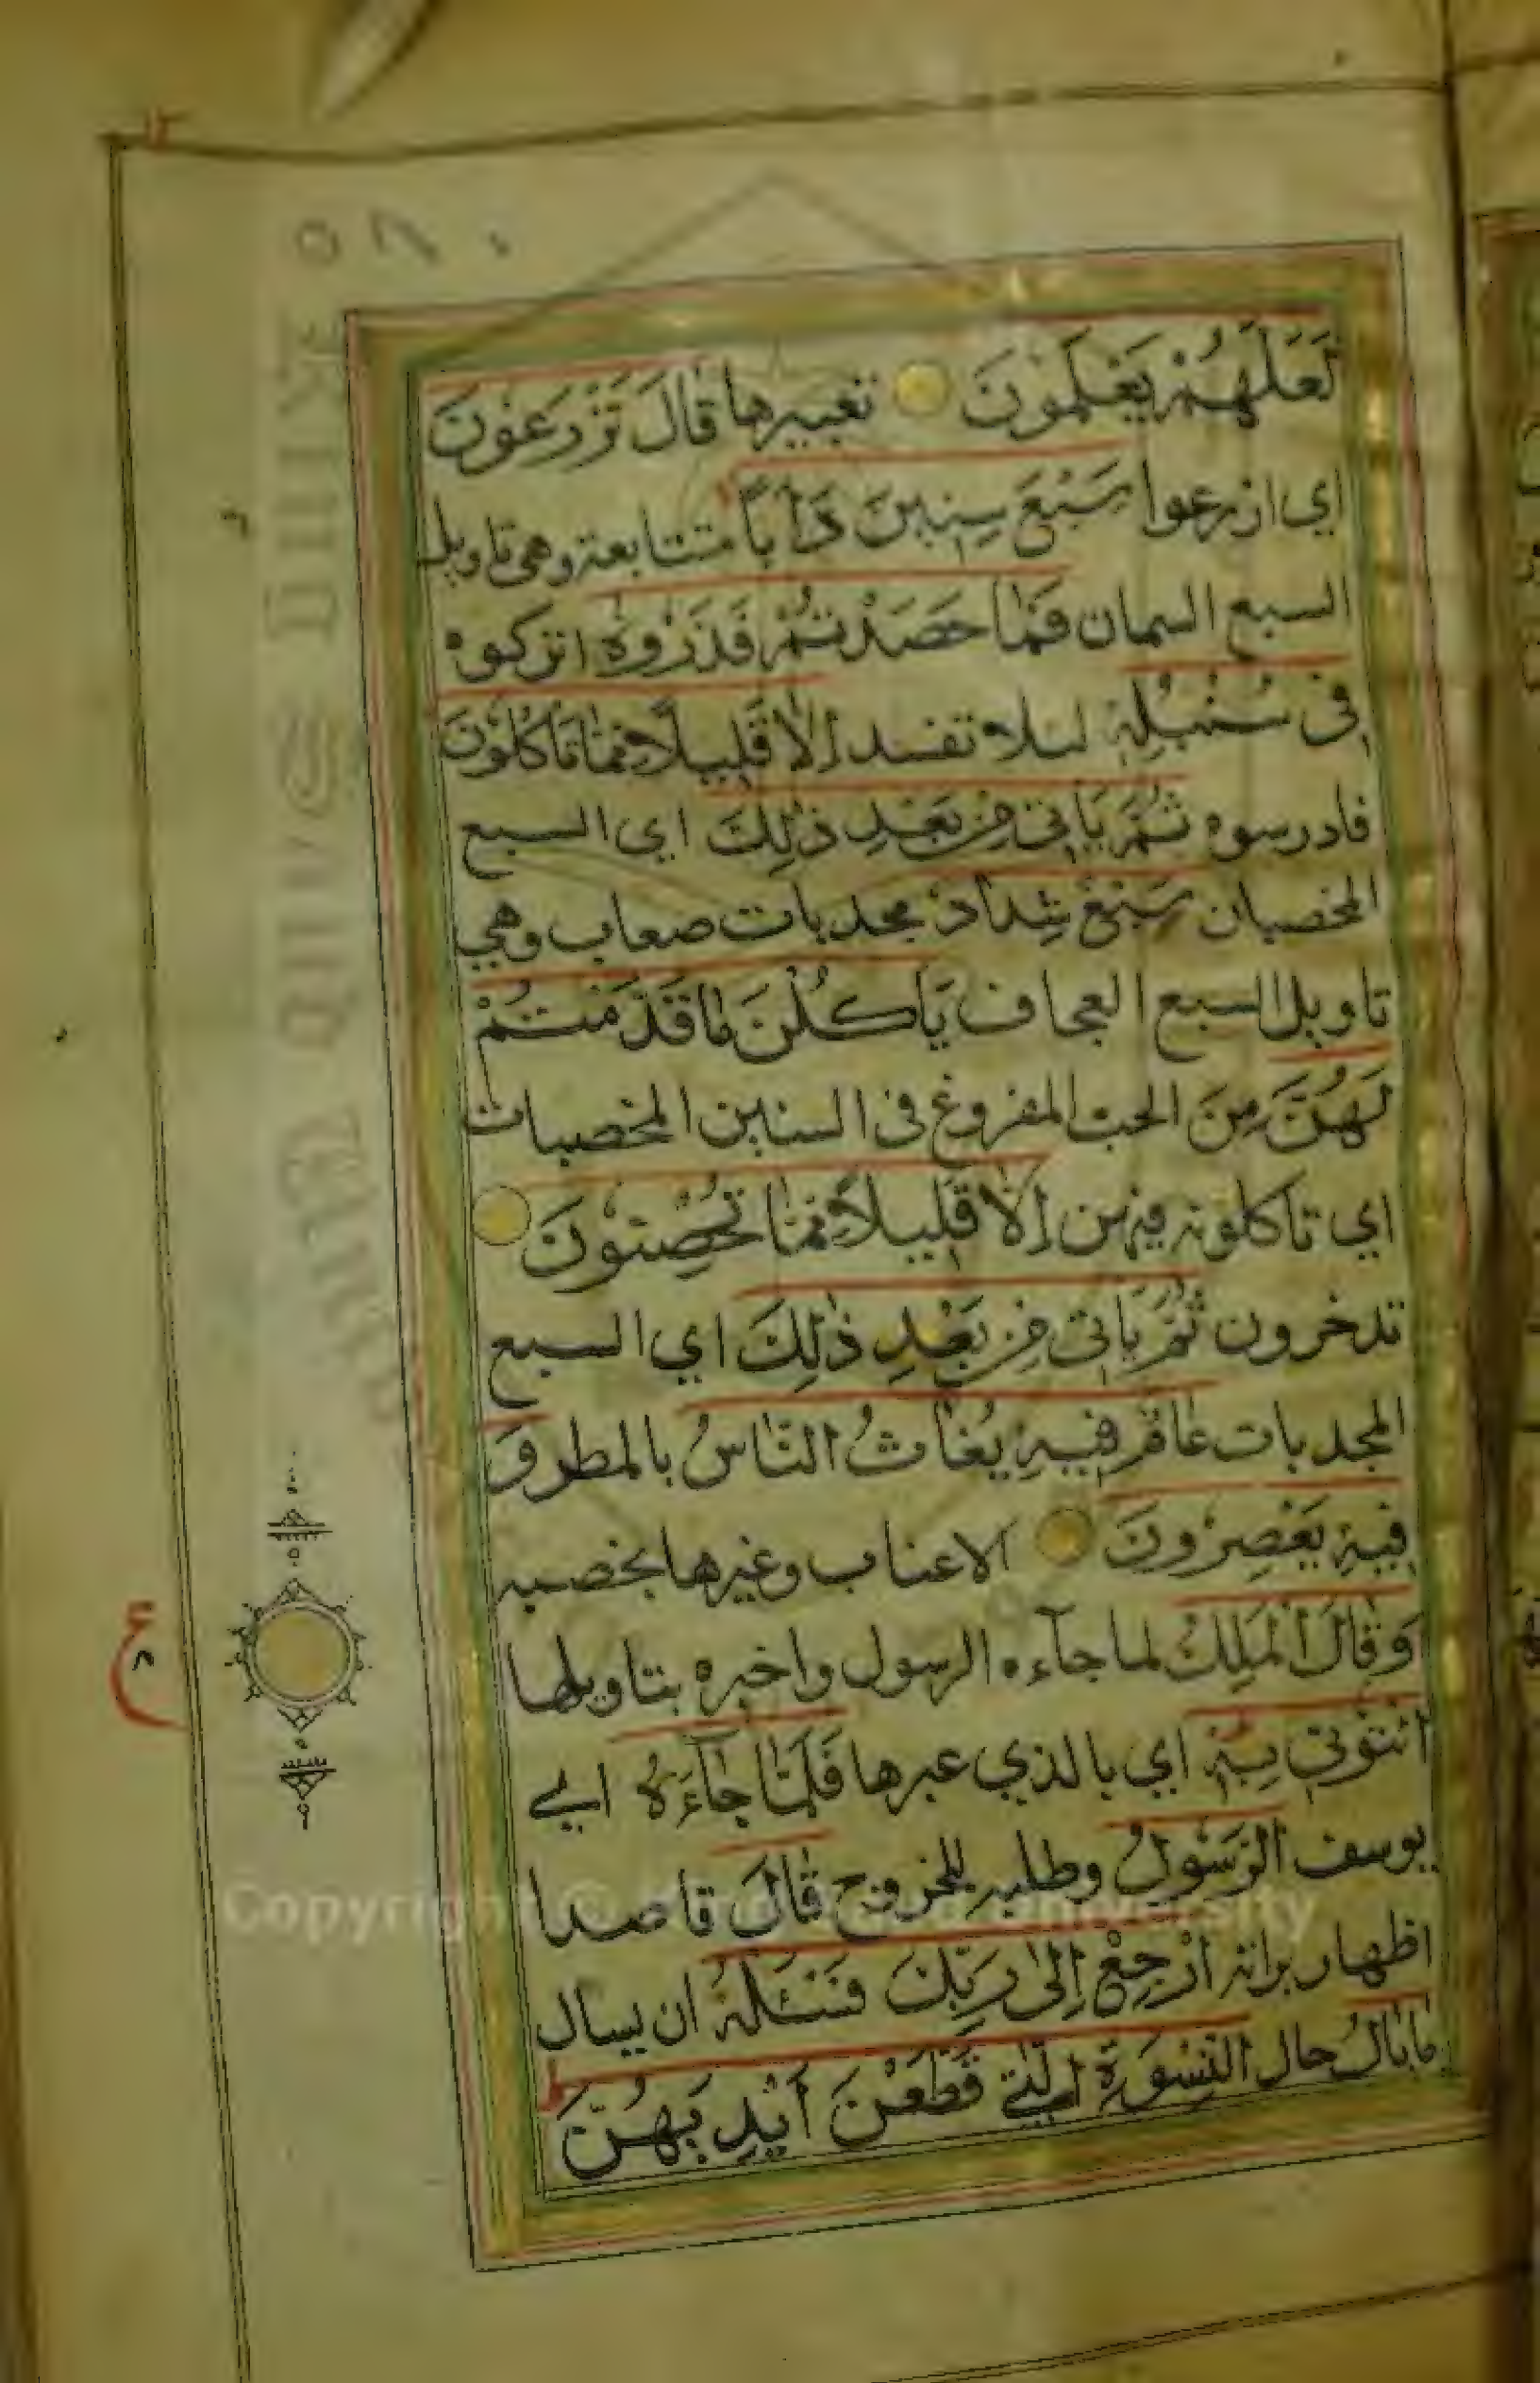 لَعَلَّهُمْ يَعْلَمُونَ تعبيرها قَالَ تَزْرَعُونَ
اي ازرعوا سَبْعَ سِنِينَ دَأَبًا متتابعة وهي تاويل
السبع السمان فَمَا حَصَدْتُمْ فَذَرُوهُ اتركوه
فِي سُنْبُلِهِ لئلا تفسد إِلَّا قَلِيلًا مِمَّا تَأْكُلُونَ
فادرسوه ثُمَّ يَأْتِي مِنْ بَعْدِ ذَٰلِكَ اي السبع
المخصبات سَبْعٌ شِدَادٌ مجدبات صعاب وهي
تاويل السبع العجاف يَأْكُلْنَ مَا قَدَّمْتُمْ
لَهُنَّ مِنَ الحب المزروع في السنين المخصبات
اي تاكلونه فيهن إِلَّا قَلِيلًا مِمَّا تُحْصِنُونَ
تدخرون ثُمَّ يَأْتِي مِنْ بَعْدِ ذَٰلِكَ اي السبع
المجدبات عَامٌ فِيهِ يُغَاثُ النَّاسُ بالمطر وَ
فِيهِ يَعْصِرُونَ الاعناب وغيرها بخصبه
وَقَالَ الْمَلِكُ لما جآءه الرسول واخبره بتاويلها
ائْتُونِي بِهِ اي بالذي عبرها فَلَمَّا جَآءَهُ اي
يوسف الرَّسُولُ وطلبه للخروج قَالَ قاصدا
اظهار براته ارْجِعْ إِلَىٰ رَبِّكَ فَسْـَٔلْهُ ان يسال
مَا بَالُ حال النِّسْوَةِ الّٰتِي قَطَّعْنَ أَيْدِيَهُنَّ
ع
٨
Copyright © King Saud University